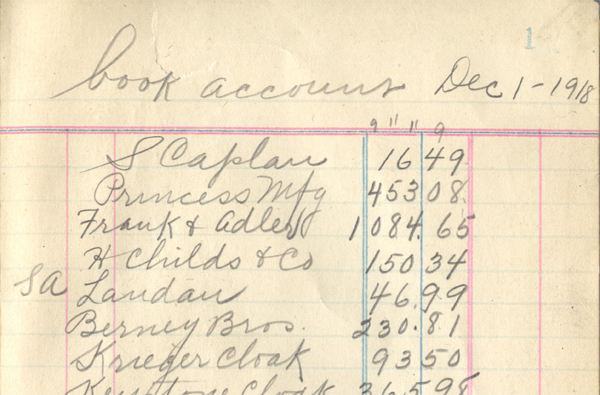 1
book account Dec 1-1918
9 11 11 9
S Caplan 16 49
Princess Mfg 453 08.
Frank & Adler 1 084. 65
H Childs & Co 150 34
SA Landau 46. 99
Berney Bros. 230. 81
Krieger Cloak 93 50
Keystone Cloak 36 5 98